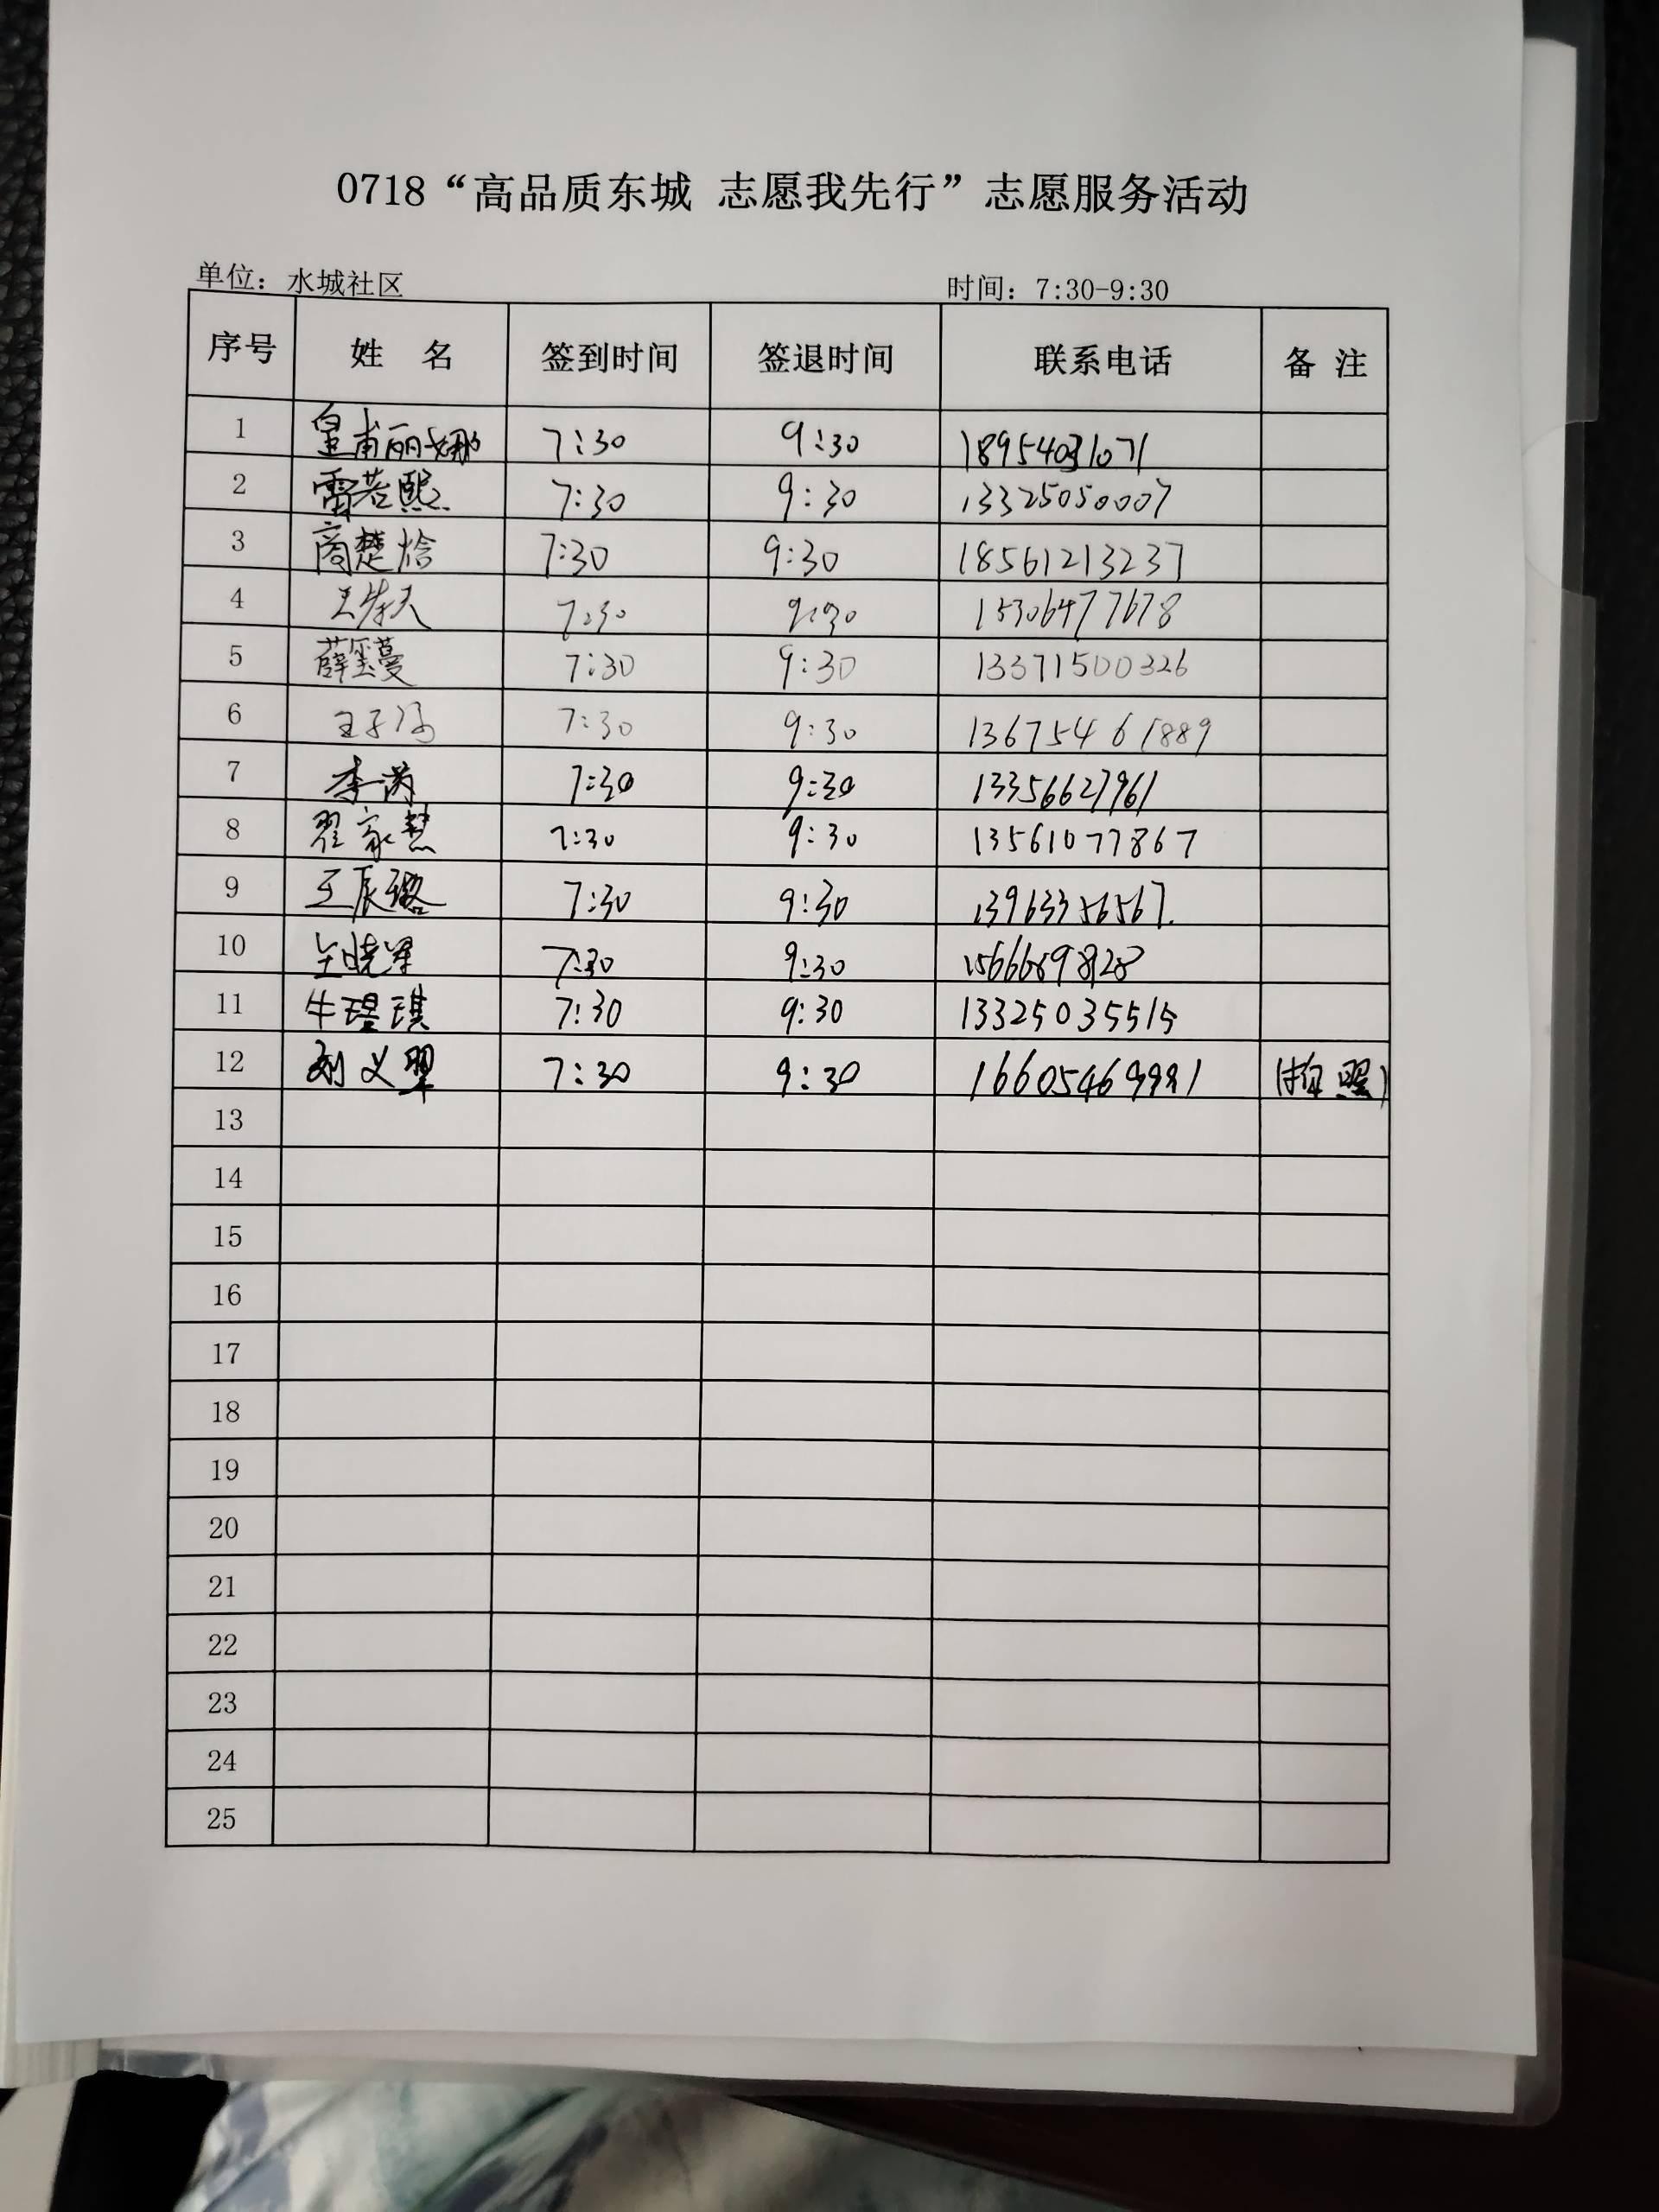 0718“高品质东城 志愿我先行”志愿服务活动
单位：水城社区 时间：7:30-9:30
序号 姓 名 签到时间 签退时间 联系电话 备 注
1 皇甫丽娜 7:30 9:30 18954031071
2 雷若熙 7:30 9:30 13325050007
3 商楚焓 7:30 9:30 18561213237
4 7:30 9:30 15306477678
5 薛玺蔓 7:30 9:30 13371500326
6 王子 7:30 9:30 13675461889
7 李芮 7:30 9:30 13356627961
8 翟家慧 7:30 9:30 13561077867
9 王辰璐 7:30 9:30 13963356567.
10 7:30 9:30
11 牛瑆琪 7:30 9:30 13325035515
12 刘义翠 7:30 9:30 (拍照)
13
14
15
16
17
18
19
20
21
22
23
24
25